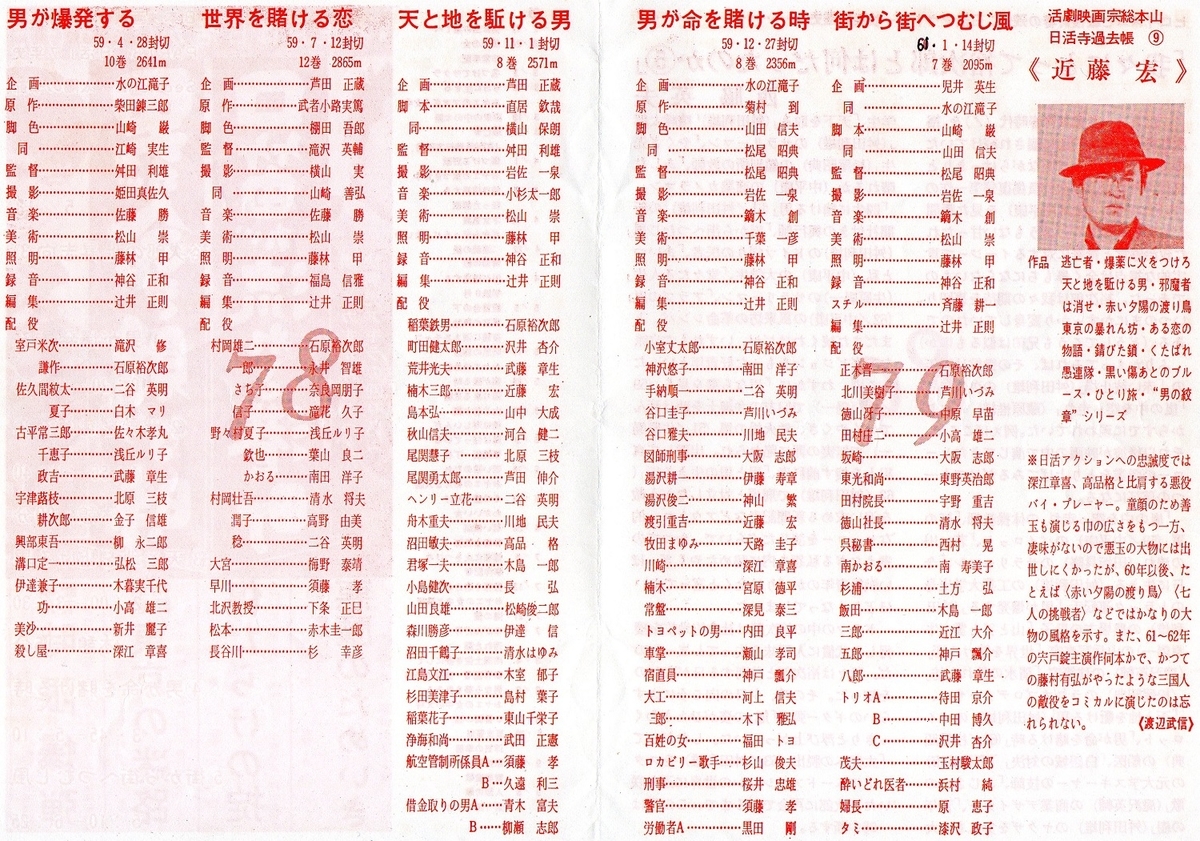 男が爆発する
59・4・28封切
10巻 2641m
企画………水の江滝子
原作………柴田錬三郎
脚色………山崎 巌
同………江崎 実生
監督………舛田 利雄
撮影………姫田真佐久
音楽………佐藤 勝
美術………松山 崇
照明………藤林 甲
録音………神谷 正和
編集………辻井 正則
配役
室戸米次………滝沢 修
謙作………石原裕次郎
佐久間紋太………二谷 英明
夏子………白木 マリ
古平常三郎………佐々木孝丸
千恵子………浅丘ルリ子
政吉………武藤 章生
宇津露枝………北原 三枝
耕次郎………金子 信雄
興部東吾………柳 永二郎
溝口定一………弘松 三郎
伊達兼子………木暮実千代
功………小高 雄二
美沙………新井 麗子
殺し屋………深江 章喜
世界を賭ける恋
59・7・12封切
12巻 2865m
企画………芦田 正蔵
原作………武者小路実篤
脚色………棚田 吾郎
監督………滝沢 英輔
撮影………横山 実
同………山崎 善弘
音楽………佐藤 勝
美術………松山 崇
照明………藤林 甲
録音………福島 信雅
編集………辻井 正則
配役
村岡雄二………石原裕次郎
一郎………永井 智雄
さち子………奈良岡朋子
信子………滝花 久子
野々村夏子………浅丘ルリ子
欽也………葉山 良二
かおる………南田 洋子
村岡壮吾………清水 将夫
潤子………高野 由美
稔………二谷 英明
大宮………梅野 泰靖
早川………須藤 孝
北沢教授………下条 正巳
松本………赤木圭一郎
長谷川………杉 幸彦
78
天と地を駈ける男
59・11・1封切
8巻 2571m
企画………芦田 正蔵
脚本………直居 欽哉
同………横山 保朗
監督………舛田 利雄
撮影………岩佐 一泉
音楽………小杉太一郎
美術………松山 崇
照明………藤林 甲
録音………神谷 正和
編集………辻井 正則
配役
稲葉鉄男………石原裕次郎
町田健太郎………沢井 杏介
荒井光夫………武藤 章生
楠木三郎………近藤 宏
島本弘………山中 大成
秋山信夫………河合 健二
尾関慧子………北原 三枝
尾関勇太郎………芦田 伸介
ヘンリー立花………二谷 英明
舟木重夫………川地 民夫
沼田敏夫………高品 格
君塚一夫………木島 一郎
小島健次………長 弘
山田良雄………松崎俊二郎
森川勝彦………伊達 信
沼田千鶴子………清水はゆみ
江島文江………木室 郁子
杉田美津子………島村 葉子
稲葉花子………東山千栄子
浄海和尚………武田 正憲
航空管制所係員A………須藤 孝
B………久遠 利三
借金取りの男A………青木 富夫
B………柳瀬 志郎
男が命を賭ける時
59・12・27封切
8巻 2356m
企画………水の江滝子
原作………菊村 到
脚色………山田 信夫
同………松尾 昭典
監督………松尾 昭典
撮影………岩佐 一泉
音楽………鏑木 創
美術………千葉 一彦
照明………藤林 甲
録音………神谷 正和
編集………辻井 正則
配役
小室丈太郎………石原裕次郎
神沢悠子………南田 洋子
手納順一………二谷 英明
谷口圭子………芦川いづみ
谷口雅夫………川地 民夫
図師刑事………大阪 志郎
湯沢耕一………伊藤 寿章
湯沢俊二………神山 繁
渡引重吉………近藤 宏
牧田まゆみ………天路 圭子
川崎………深江 章喜
楠木………宮原 徳平
常盤………深見 泰三
トヨペットの男………内田 良平
車掌………瀬山 孝司
宿直員………神戸 瓢介
大工………河上 信夫
三郎………木下 雅弘
百姓の女………福田 トヨ
ロカビリー歌手………杉山 俊夫
刑事………桜井 忠雄
警官………須藤 孝
労働者A………黒田 剛
街から街へつむじ風
61・1・14封切
7巻 2095m
企画………児井 英生
同………水の江滝子
脚本………山崎 巌
同………山田 信夫
監督………松尾 昭典
撮影………岩佐 一泉
音楽………鏑木 創
美術………松山 崇
照明………藤林 甲
録音………神谷 正和
スチル………斉藤 耕一
編集………辻井 正則
配役
正木晋一………石原裕次郎
北川美津子………芦川いづみ
徳山冴子………中原 早苗
田村庄二………小高 雄二
坂崎………大阪 志郎
東光和尚………東野英治郎
田村院長………宇野 重吉
徳山社長………清水 将夫
呉秘書………西村 晃
南かおる………南 寿美子
杉浦………土方 弘
飯田………木島 一郎
三郎………近江 大介
五郎………神戸 瓢介
八郎………武藤 章生
トリオA………待田 京介
B………中田 博久
C………沢井 杏介
茂夫………玉村駿太郎
酔いどれ医者………浜村 純
婦長………原 恵子
タミ………漆沢 政子
79
活劇映画宗総本山
日活寺過去帳 ⑨
《近藤宏》
作品 逃亡者・爆薬に火をつけろ
天と地を駈ける男・邪魔者
は消せ・赤い夕陽の渡り鳥
東京の暴れん坊・ある恋の
物語・錆びた鎖・くたばれ
愚連隊・黒い傷あとのブル
ース・ひとり旅・“男の紋
章”シリーズ
※日活アクションへの忠誠度では
深江章喜、高品格と比肩する悪役
バイ・プレーヤー。童顔のため善
玉も演じる巾の広さをもつ一方、
凄味がないので悪玉の大物には出
世しにくかったが、60年以後、た
とえば〈赤い夕陽の渡り鳥〉〈七
人の挑戦者〉などではかなりの大
物の風格を示す。また、61〜62年
の宍戸錠主演作何本かで、かつて
の藤村有弘がやったような三国人
の敵役をコミカルに演じたのは忘
れられない。《渡辺武信》